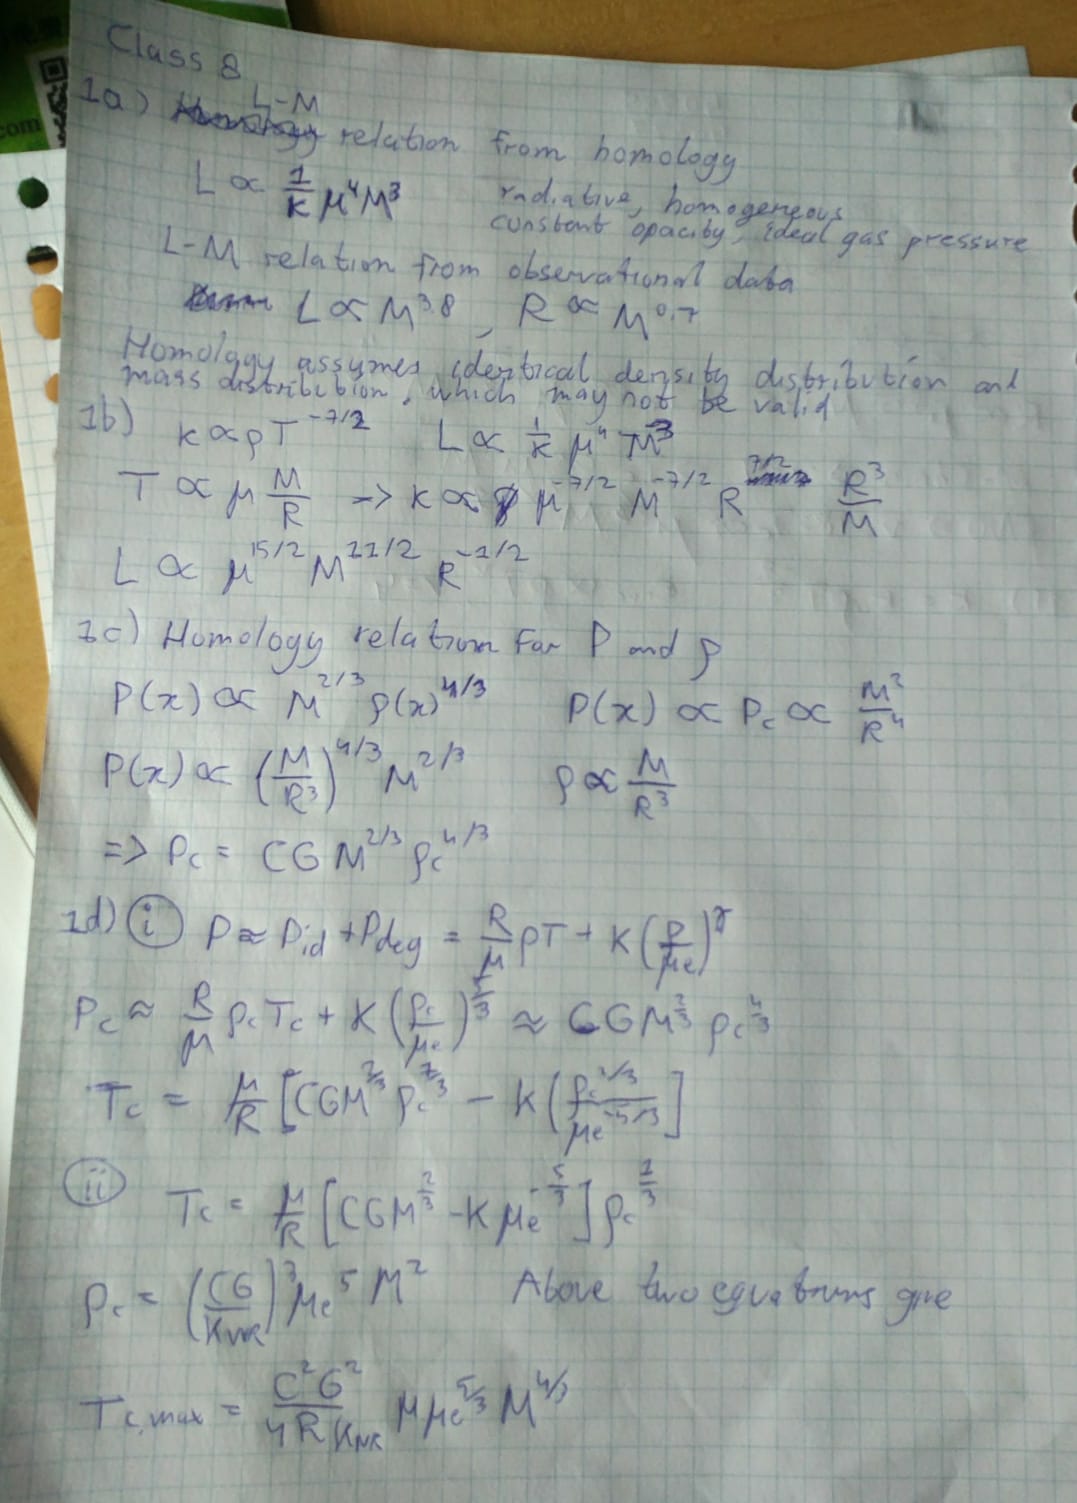 com
Class 8
1a) L-M relation from homology
L ∝ 1/κ μ⁴M³ radiative, homogeneous
constant opacity, ideal gas pressure
L-M relation from observational data
L ∝ M^3.8, R ∝ M^0.7
Homology assumes identical density distribution and
mass distribution, which may not be valid
1b) κ∝ρT^-7/2 L ∝ 1/κ μ⁴ M³
T ∝ μ M/R -> κ ∝ μ^-7/2 M^-7/2 R^7/2 R³/M
L ∝ μ^15/2 M^11/2 R^-1/2
1c) Homology relation for P and ρ
P(x) ∝ M^2/3 ρ(x)^4/3 P(x) ∝ Pc ∝ M²/R⁴
P(x) ∝ (M/R³)^4/3 M^2/3 ρ ∝ M/R³
=> Pc = CGM^2/3 ρc^4/3
1d) i P ≈ Pid + Pdeg = R/μ ρT + K(ρ/μe)^γ
Pc ≈ R/μ ρcTc + K(ρc/μe)^5/3 ≈ CGM^2/3 ρc^4/3
Tc = μ/R [CGM^2/3 ρc^1/3 - K(ρc^2/3/μe^-5/3]
ii Tc = μ/R [CGM^2/3 - Kμe^-5/3] ρc^1/3
ρc = (CG/K_NR)³ μe⁵ M² Above two equations give
Tc,max = C²G²/4RK_NR μμe^5/3 M^4/3